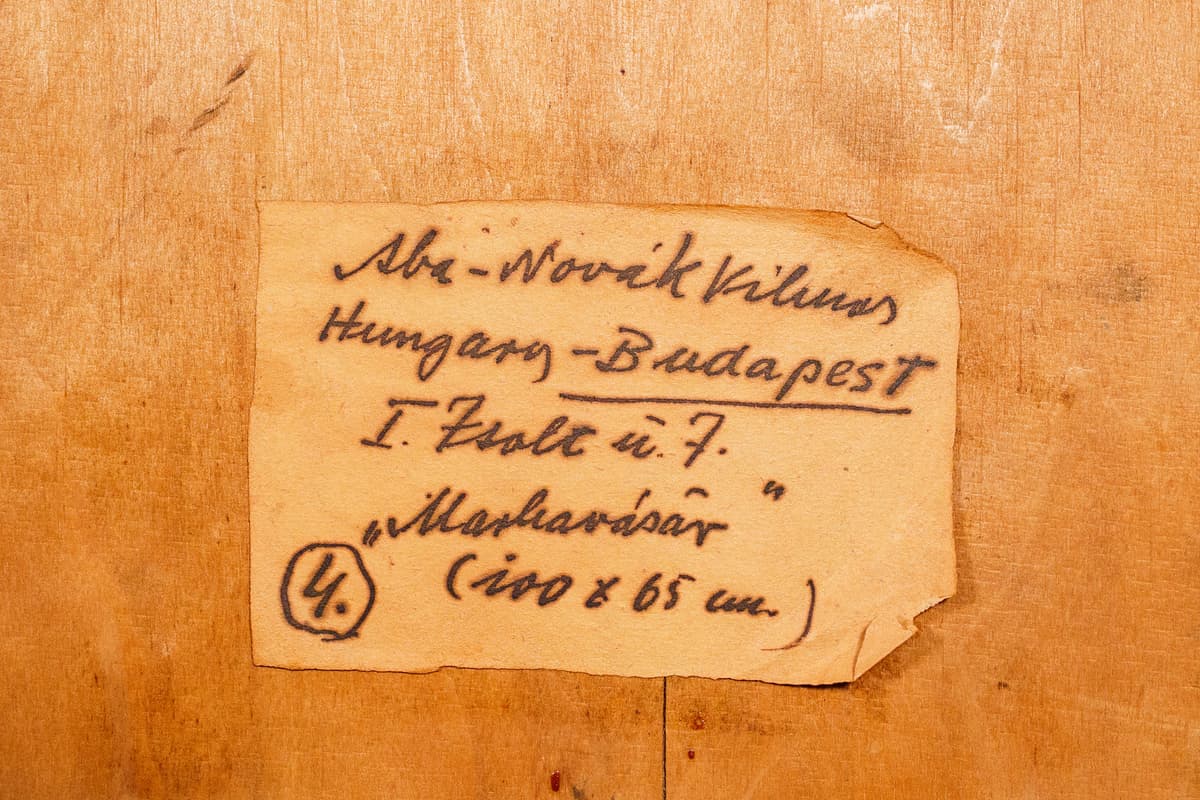 Aba-Novák Vilmos
Hungary-Budapest
I. Zsolt u. 7.
„Marhavásár"
4. (100 x 65 cm.)